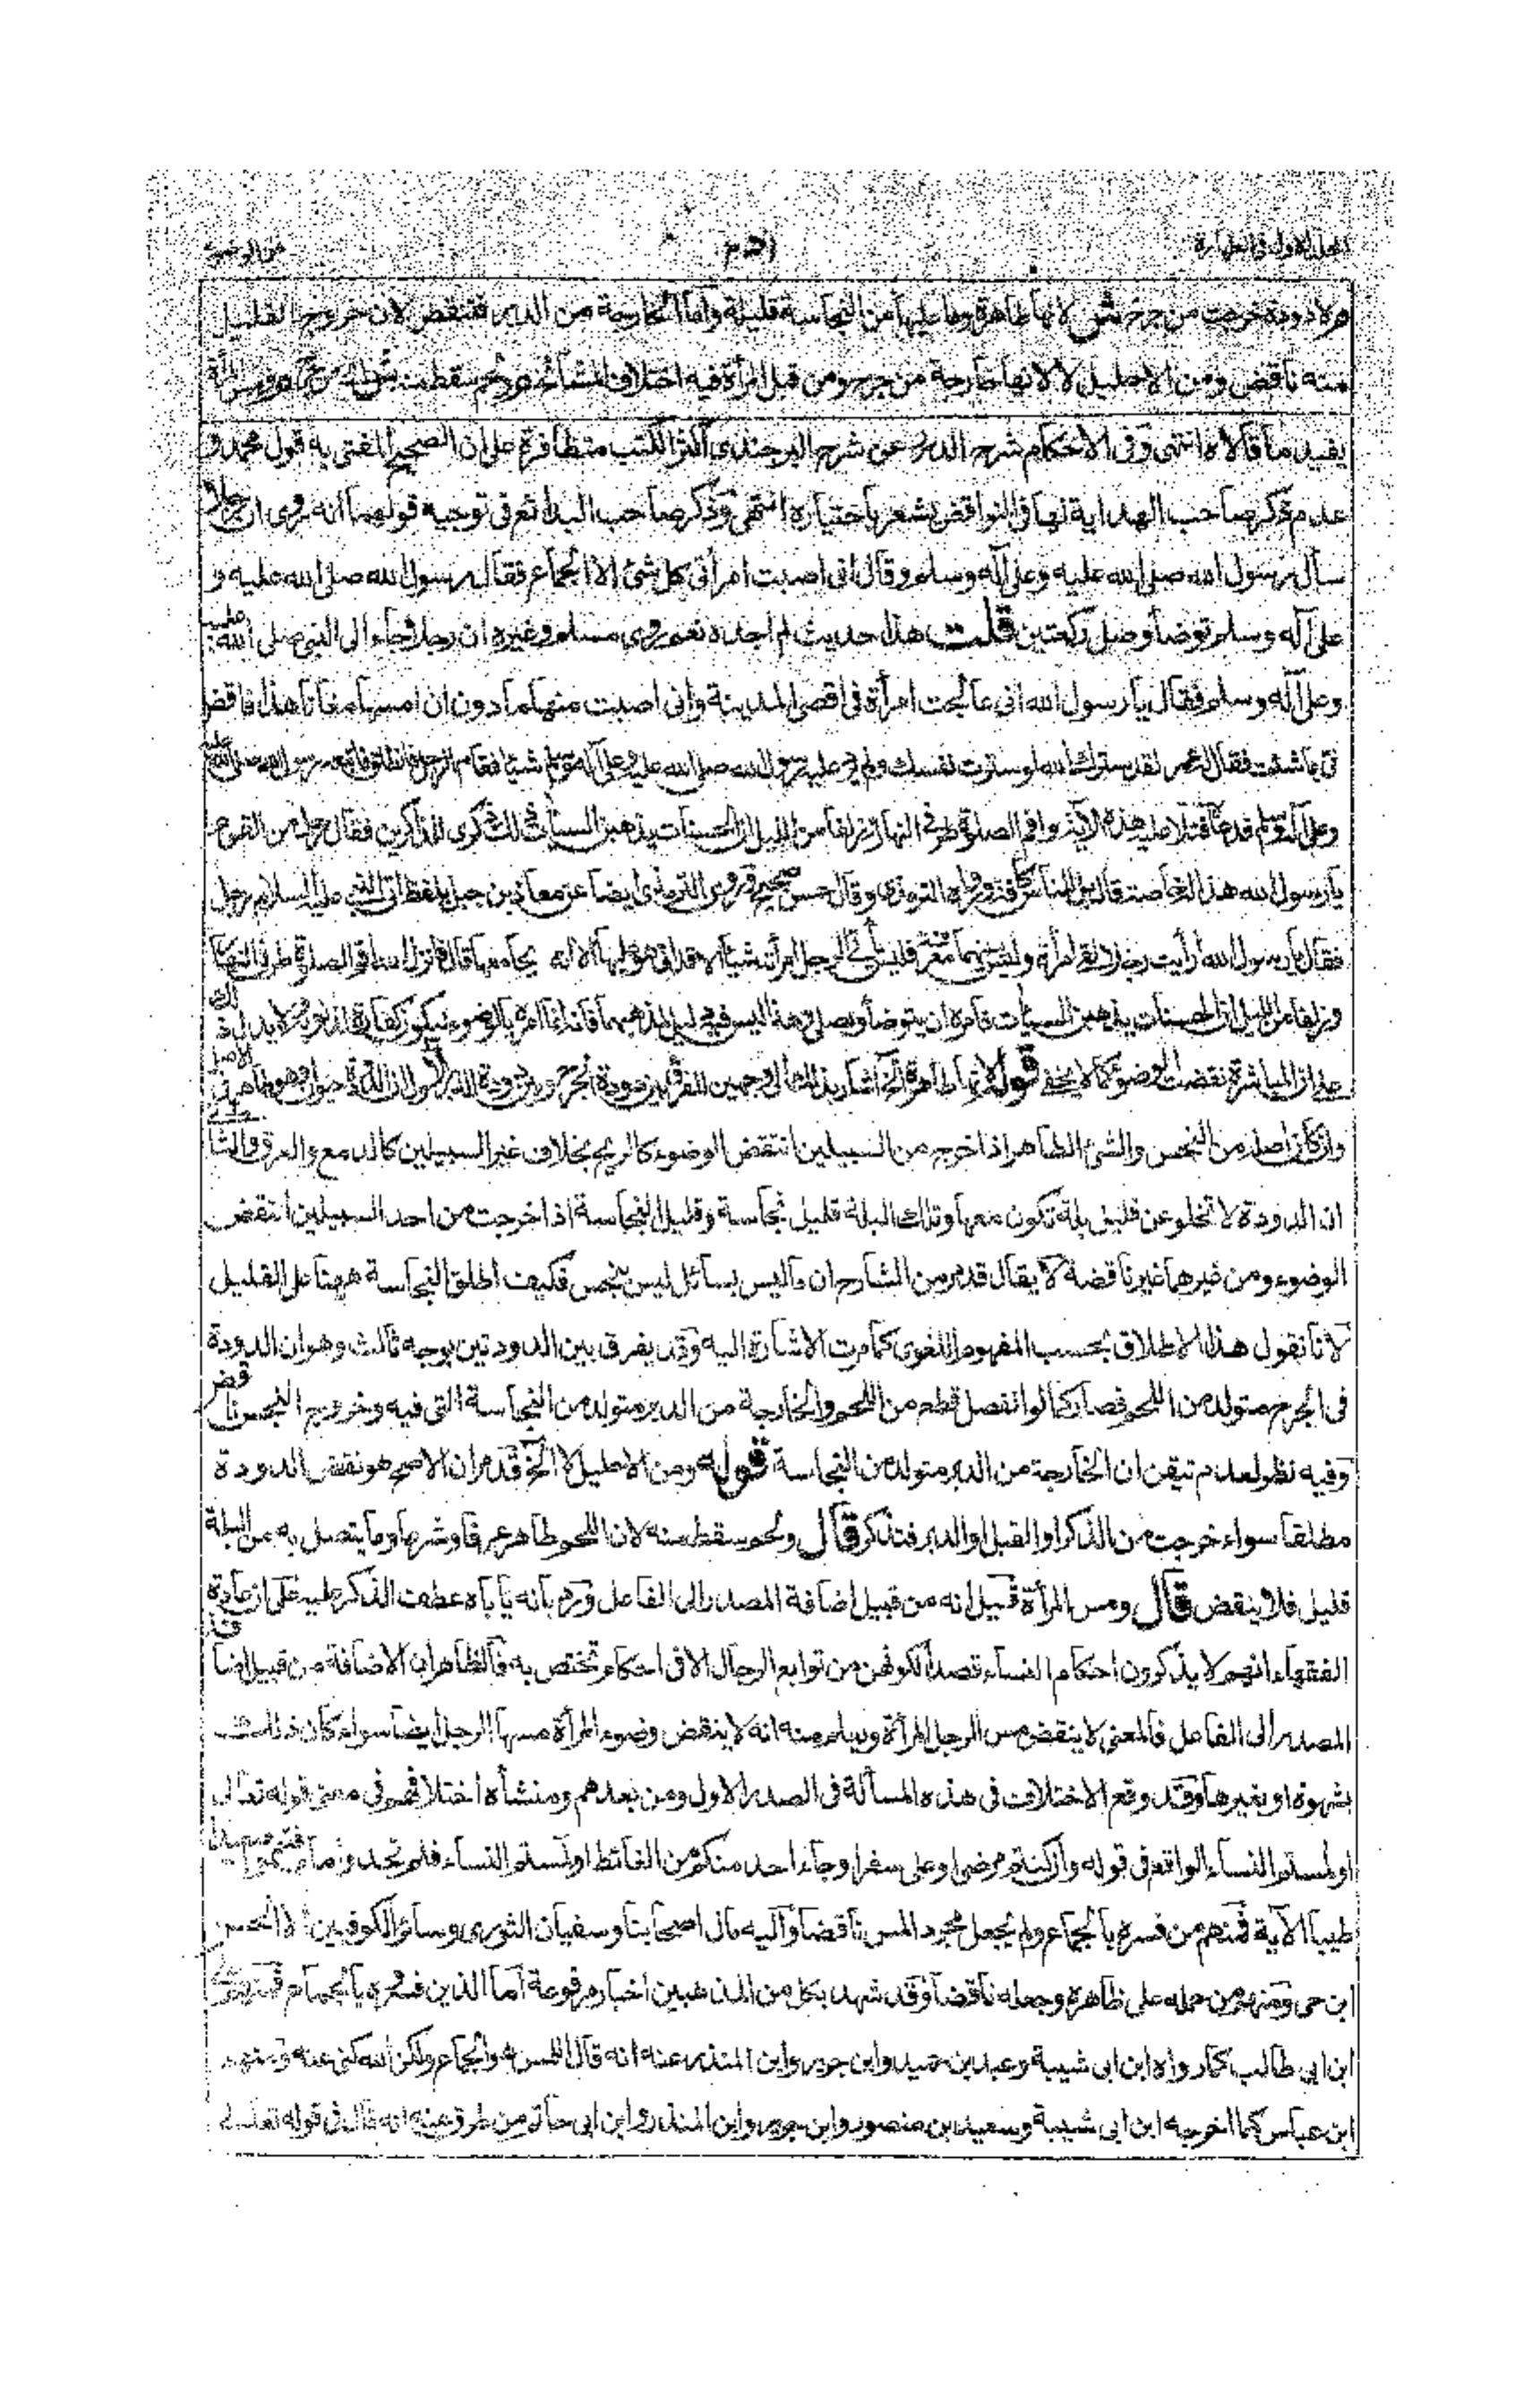 المجلد الاول في الطهارة ٢٥١ نواقض الوضوء
م لا دودة خرجت من جرح ش لانها طاهرة وما عليها من النجاسة قليلة واما الخارجة من الدبر فتنقض لان خروج القليل
منه ناقض ومن الاحليل لا لانها خارجة من جرح ومن قبل المرأة فيه اختلاف المشائخ م ولحم سقط منه ش اى من جرح م ومس المرأة
يفيد ما قالاه انتهى وفى الاحكام شرح الدرر عن شرح البرجندى اكثر الكتب متظافرة على ان الصحيح المفتى به قول محمد و
عدم ذكر صاحب الهداية لها فى النواقض يشعر باختياره انتهى وذكر صاحب البدائع فى توجيه قولهما انه روى ان رجلا
سأل رسول الله صلى الله عليه وعلى آله وسلم وقال انى اصبت امرأتى كل شئ الا الجماع فقال رسول الله صلى الله عليه و
على آله وسلم توضأ وصل ركعتين قلت هذا حديث لم اجده نعم روى مسلم وغيره ان رجلا جاء الى النبى صلى الله عليه
وعلى آله وسلم فقال يا رسول الله انى عالجت امرأة فى اقصى المدينة وانى اصبت منها ما دون ان امسها فانا هذا فاقض
فى ما شئت فقال عمر لقد سترك الله لو سترت نفسك ولم يرد عليه رسول الله صلى الله عليه وعلى آله وسلم شيئا فقام الرجل فانطلق فاتبعه رسول الله صلى الله عليه
وعلى آله وسلم فدعاه فتلا عليه هذه الآية واقم الصلوة طرفى النهار وزلفا من الليل ان الحسنات يذهبن السيأت ذلك ذكرى للذاكرين فقال رجل من القوم
يا رسول الله هذا له خاصة قال بل للناس كافة ورواه الترمذى وقال حسن صحيح وروى الترمذى ايضا عن معاذ بن جبل بلفظ اتى النبى عليه السلام رجل
فقال يا رسول الله أرأيت رجلا لقى امرأة وليس بينهما معرفة فليس يأتى الرجل امرأته شيئا الا قد اتى هو اليها الا انه لم يجامعها قال فانزل الله اقم الصلوة طرفى النهار
وزلفا من الليل ان الحسنات يذهبن السيأت فامره ان يتوضأ ويصلى وهذا ليس فيه دليل لمذهبهما فانه انما امره بالوضوء ليكون كفارة لذنوبه ولا يدل ذلك
على ان المباشرة نقضت الوضوء كما لا يخفى قوله لانها طاهرة الخ اشار بذلك الى وجهين للفرق بين دودة الجرح وبين دودة الدبر الاول ان الدودة حيوان وهو طاهر فى الاصل
وان كان اصله من النجس والشئ الطاهر اذا خرج من السبيلين انتقض الوضوء كالريح بخلاف غير السبيلين كالدمع والعرق والثانى
ان الدودة لا تخلو عن قليل بلة تكون معها وتلك البلة قليل نجاسة وقليل النجاسة اذا خرجت من احد السبيلين انتقض
الوضوء ومن غيرهما غير ناقضة لا يقال قد مر من الشارح ان ما ليس بسائل ليس بنجس فكيف اطلق النجاسة ههنا على القليل
لانا نقول هذا الاطلاق بحسب المفهوم اللغوى كما مرت الاشارة اليه وقد يفرق بين الدودتين بوجه ثالث وهو ان الدودة
فى الجرح متولد من اللحم فصار كما لو انفصل قطعه من اللحم والخارجة من الدبر متولد من النجاسة التى فيه وخروج النجس ناقض
وفيه نظر لعدم تيقن ان الخارجة من الدبر متولد من النجاسة قوله ومن الاحليل لا الخ قد مر ان الاصح هو نقض الدودة
مطلقا سواء خرجت من الذكر او القبل او الدبر فتذكر قال ولحم سقط منه لان اللحم طاهر عرفا وشرعا وما يتصل به من البلة
قليل فلا ينقض قال ومس المرأة قيل انه من قبيل اضافة المصدر الى الفاعل ورد بانه يأباه عطف الذكر عليه على ان عادة
الفقهاء انهم لا يذكرون احكام النساء قصدا لكونهن من توابع الرجال الا فى احكام تختص به فالظاهر ان الاضافة من قبيل اضافة
المصدر الى الفاعل فالمعنى لا ينقض مس الرجل المرأة ويعلم منه انه لا ينقض وضوء المرأة مسها الرجل ايضا سواء كان ذلك
بشهوة او بغيرها وقد وقع الاختلاف فى هذه المسألة فى الصدر الاول ومن بعدهم ومنشأه اختلافهم فى معنى قوله تعالى
او لمستم النساء الواقع فى قوله وان كنتم مرضى او على سفر او جاء احد منكم من الغائط او لمستم النساء فلم تجدوا ماء فتيمموا صعيدا
طيبا الآية فمنهم من فسره بالجماع ولم يجعل مجرد المس ناقضا واليه مال اصحابنا وسفيان الثورى وسائر الكوفيين الا الحسن
ابن حى ومنهم من حمله على ظاهره وجعله ناقضا وقد شهد بكل من المذهبين اخبار مرفوعة اما الذين فسره بالجماع فمنهم على
ابن ابى طالب كما رواه ابن ابى شيبة وعبد بن حميد وابن جرير وابن المنذر عنه انه قال اللمس هو الجماع ولكن الله كنى عنه ومنهم
ابن عباس كما اخرجه ابن ابى شيبة وسعيد بن منصور وابن جرير وابن المنذر وابن ابى حاتم من طرق عنه انه قال فى قوله تعالى